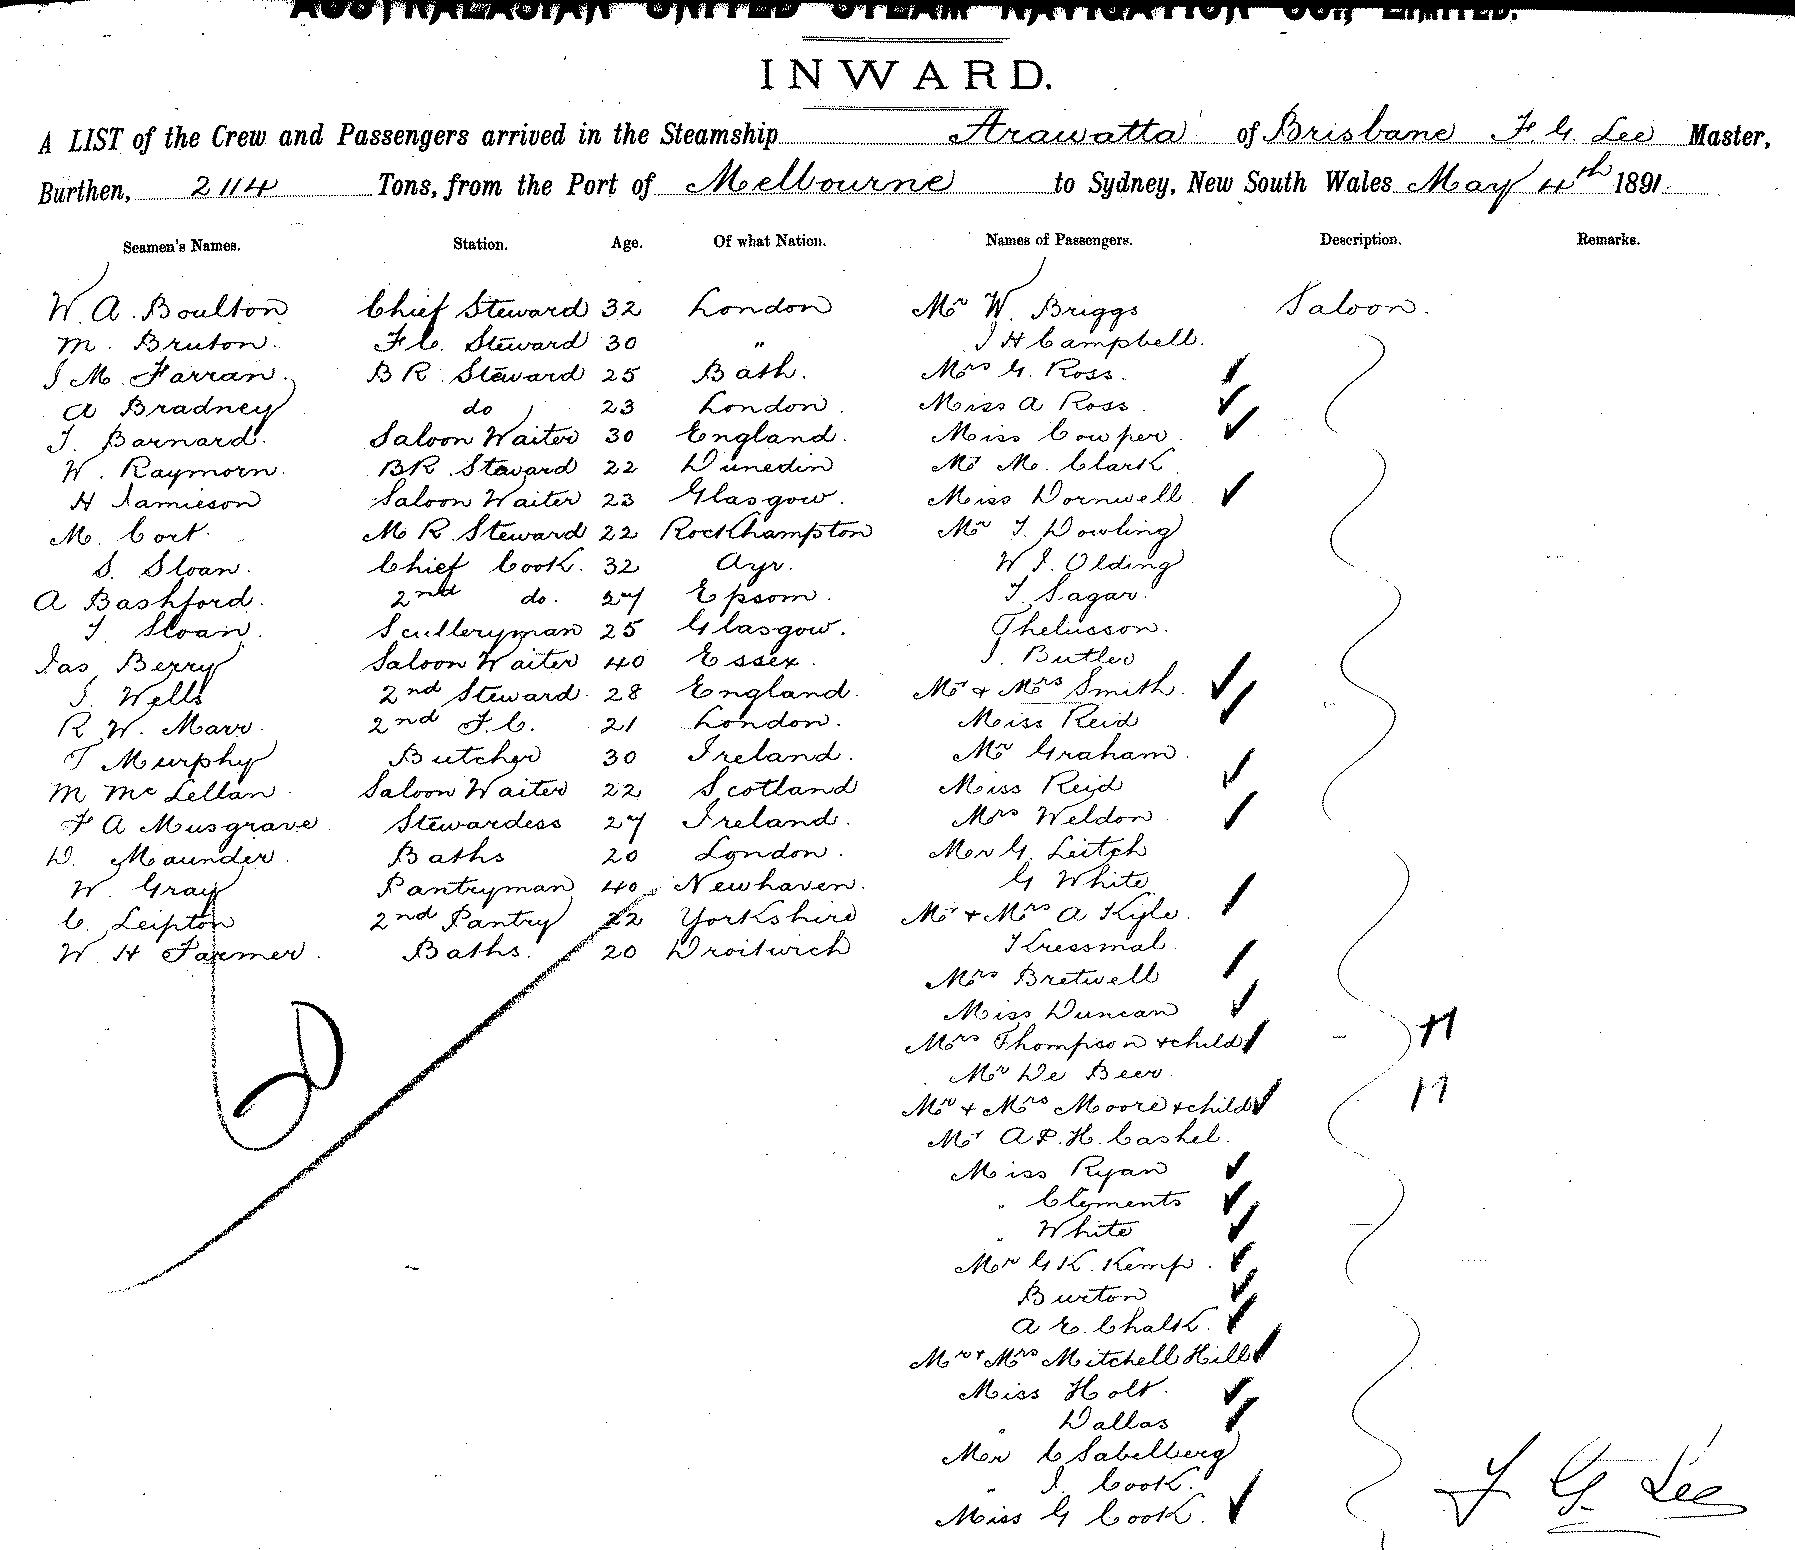 AUSTRALASIAN UNITED STEAM NAVIGATION CO., LIMITED.
INWARD.
A LIST of the Crew and Passengers arrived in the Steamship Arawatta of Brisbane F. G. Lee Master,
Burthen, 2114 Tons, from the Port of Melbourne to Sydney, New South Wales May 4th 1891.
Seamen's Names. Station. Age. Of what Nation. Names of Passengers. Description. Remarks.
W. A. Boulton Chief Steward 32 London Mr W. Briggs Saloon.
M. Bruton. F.C. Steward 30 " J H Campbell.
J M Farran. B R. Steward 25 Bath. Mrs G. Ross.
A Bradney do 23 London. Miss A Ross.
J. Barnard. Saloon Waiter 30 England. Miss Cowper.
W. Raymorn. BR. Steward 22 Dunedin Mr M. Clark
H Jamieson Saloon Waiter 23 Glasgow. Miss Dornwell.
M. Cort. M R. Steward 22 Rockhampton Mr J. Dowling
S. Sloan. Chief Cook. 32 Ayr. W J. Olding
A Bashford. 2nd do. 27 Epsom. J. Sagar.
J Sloan. Sculleryman 25 Glasgow. Thelusson.
Jas Berry Saloon Waiter 40 Essex. J. Butler
J. Wells 2nd Steward. 28 England. Mr & Mrs Smith.
R. W. Marr. 2nd F.C. 21 London. Miss Reid
T Murphy Butcher 30 Ireland. Mr Graham.
M McLellan. Saloon Waiter 22 Scotland Miss Reid
F A Musgrave Stewardess 27 Ireland. Mrs Weldon.
D. Maunder. Baths 20 London. Mr G. Leitch
W. Gray Pantryman 40 Newhaven. G White
C. Leipton 2nd Pantry 22 Yorkshire Mr & Mrs A Kyle.
W H Farmer. Baths. 20 Droitwich Kressmal.
Mrs Bretwell
Miss Duncan
Mrs Thompson & child
Mr De Beer.
Mr & Mrs Moore & child
Mr A P. H. Cashel.
Miss Ryan
" Clements
" White
Mr G K. Kemp.
Burton
A E. Chalk.
Mr & Mrs Mitchell Hill
Miss Holt.
" Dallas
Mr C Sabelberg
" J. Cook.
Miss G Cook.
F G Lee